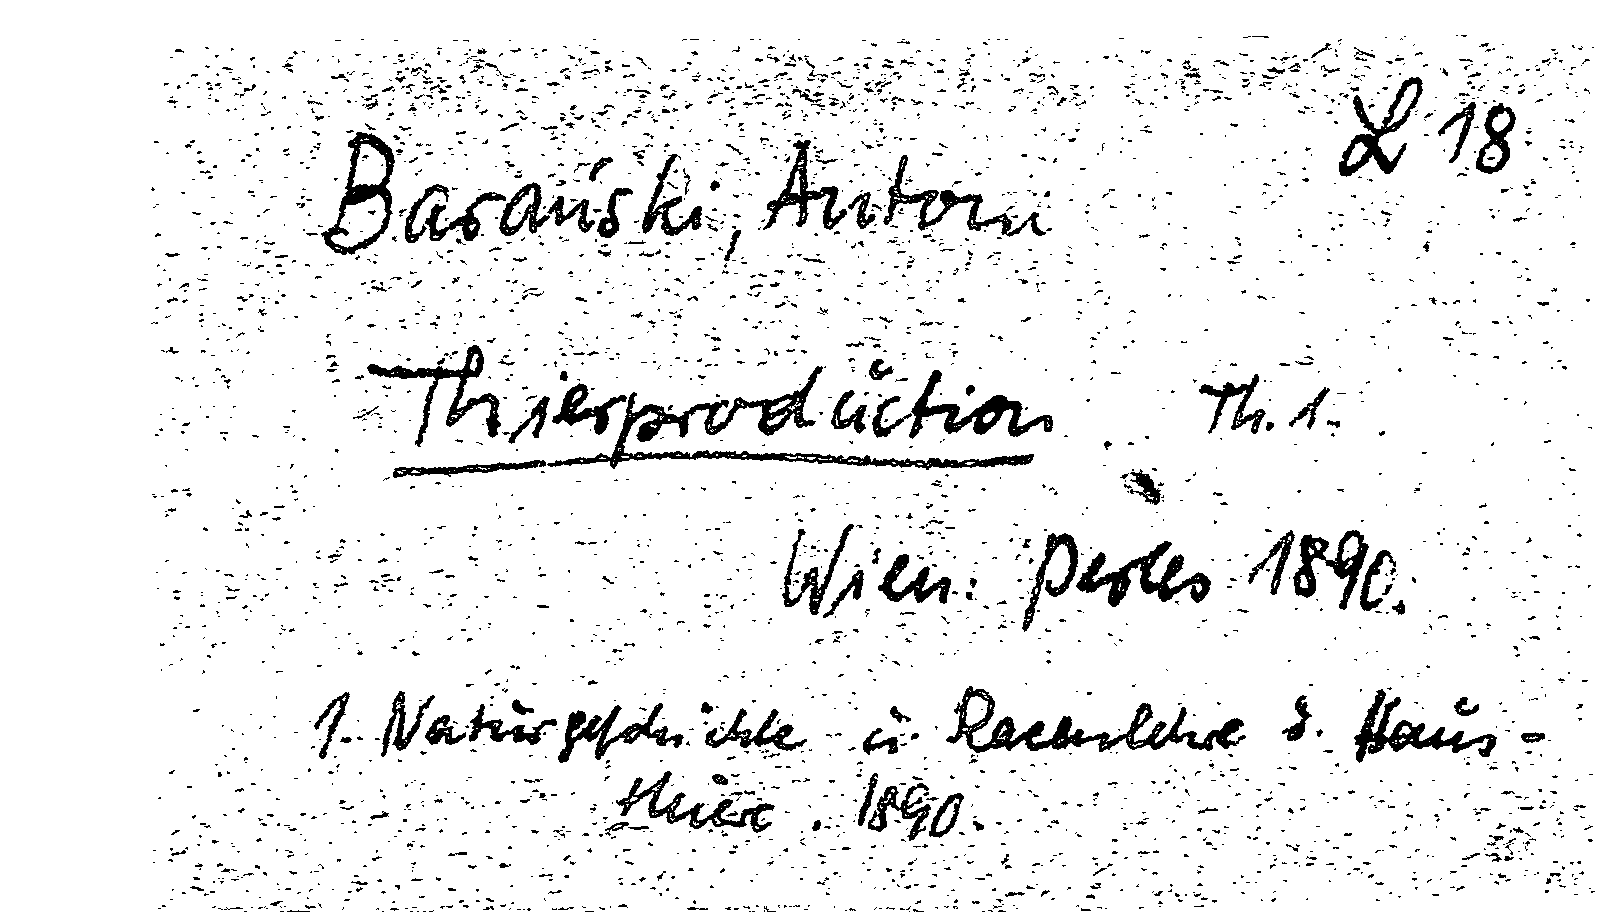 L 18
Barański, Anton
Thierproduction Th. 1.
Wien: Perles 1890.
1. Naturgeschichte u. Racenlehre d. Haus-
thiere. 1890.